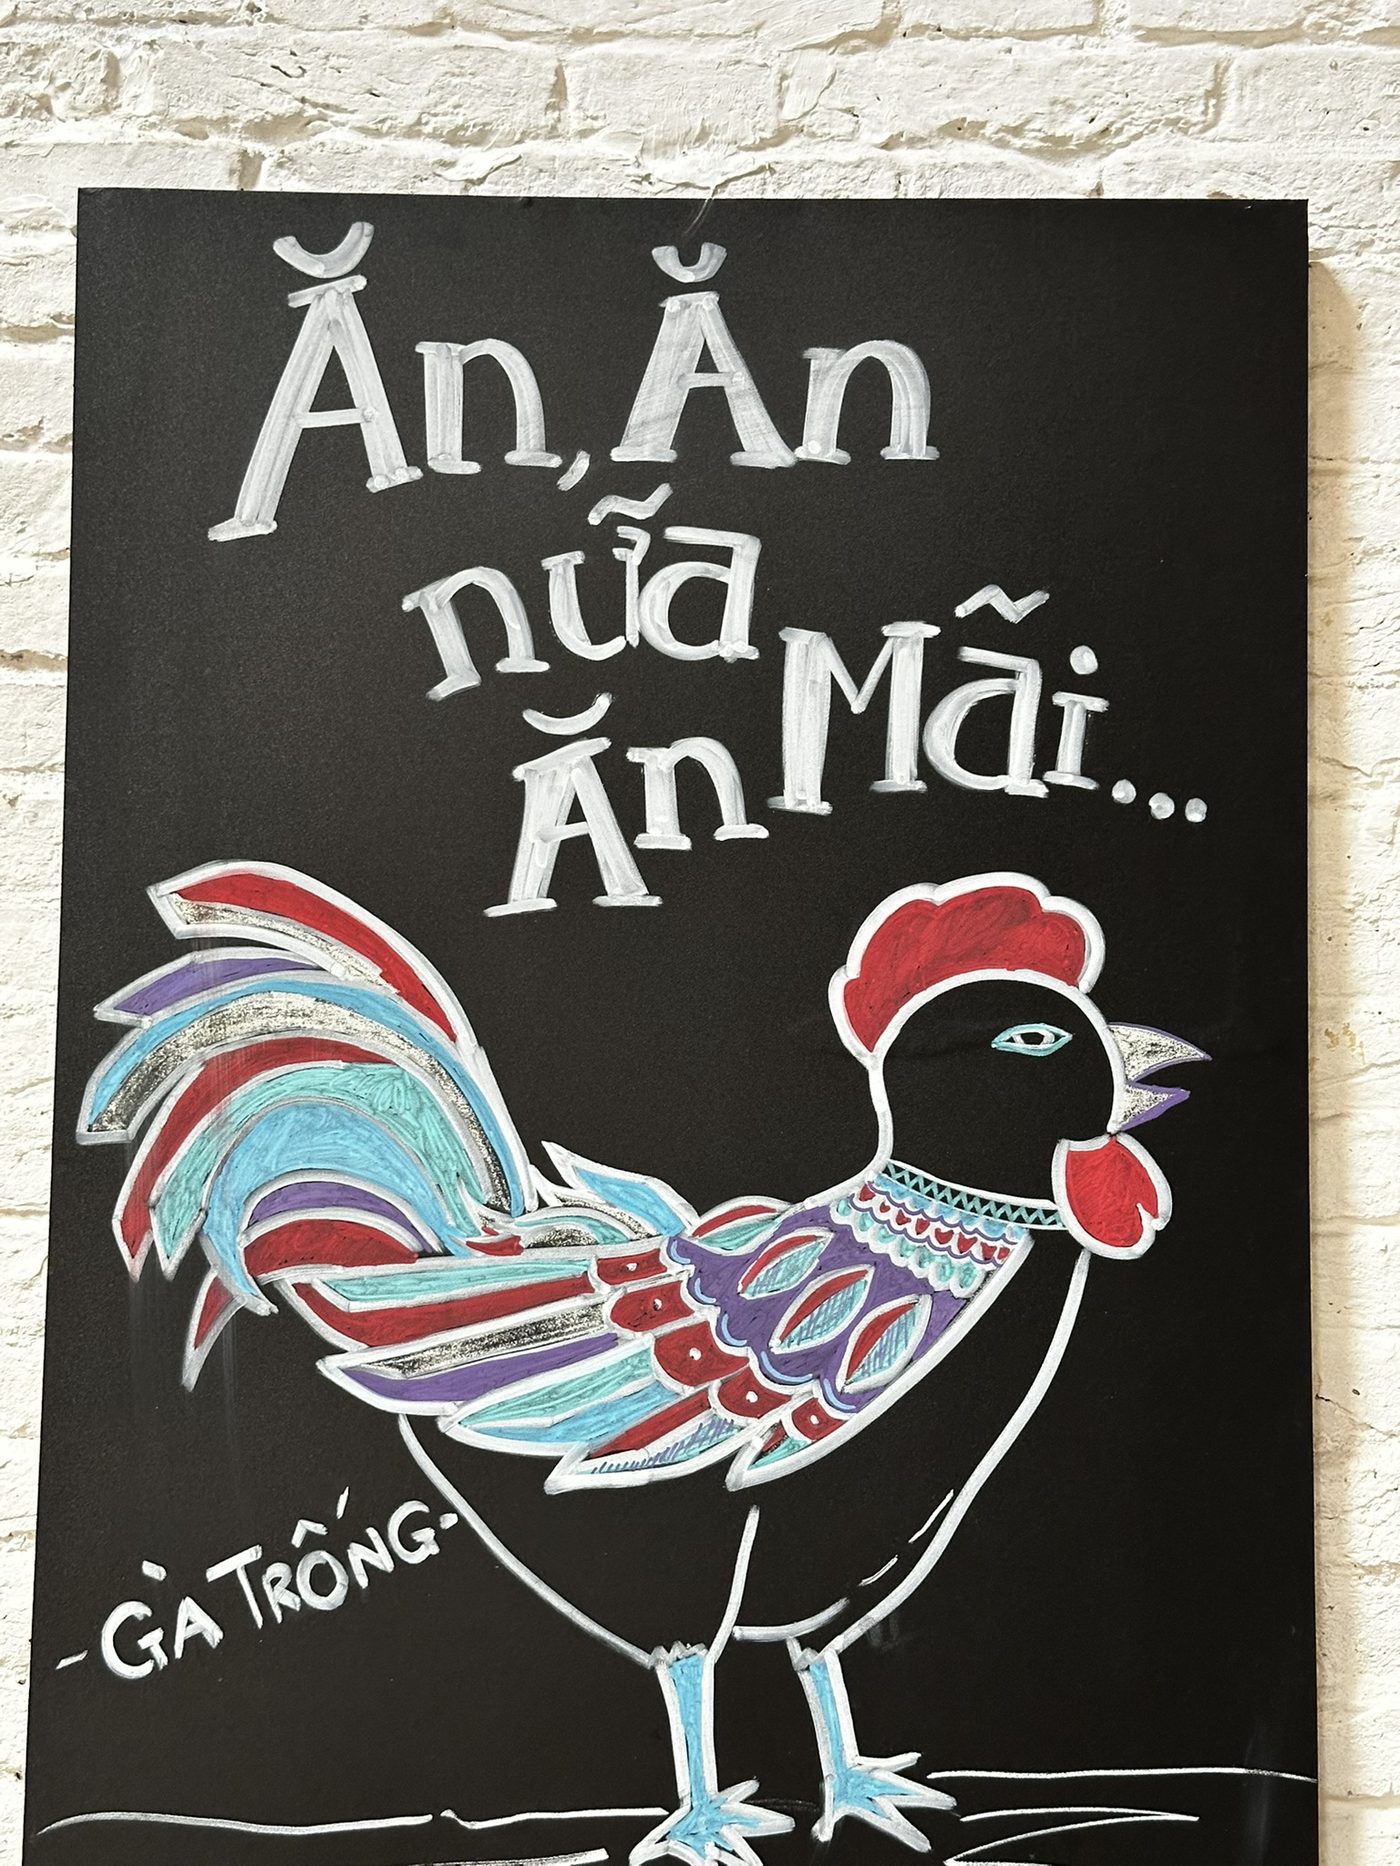 Ăn, Ăn
nữa
Ăn Mãi...
-GÀ TRỐNG-